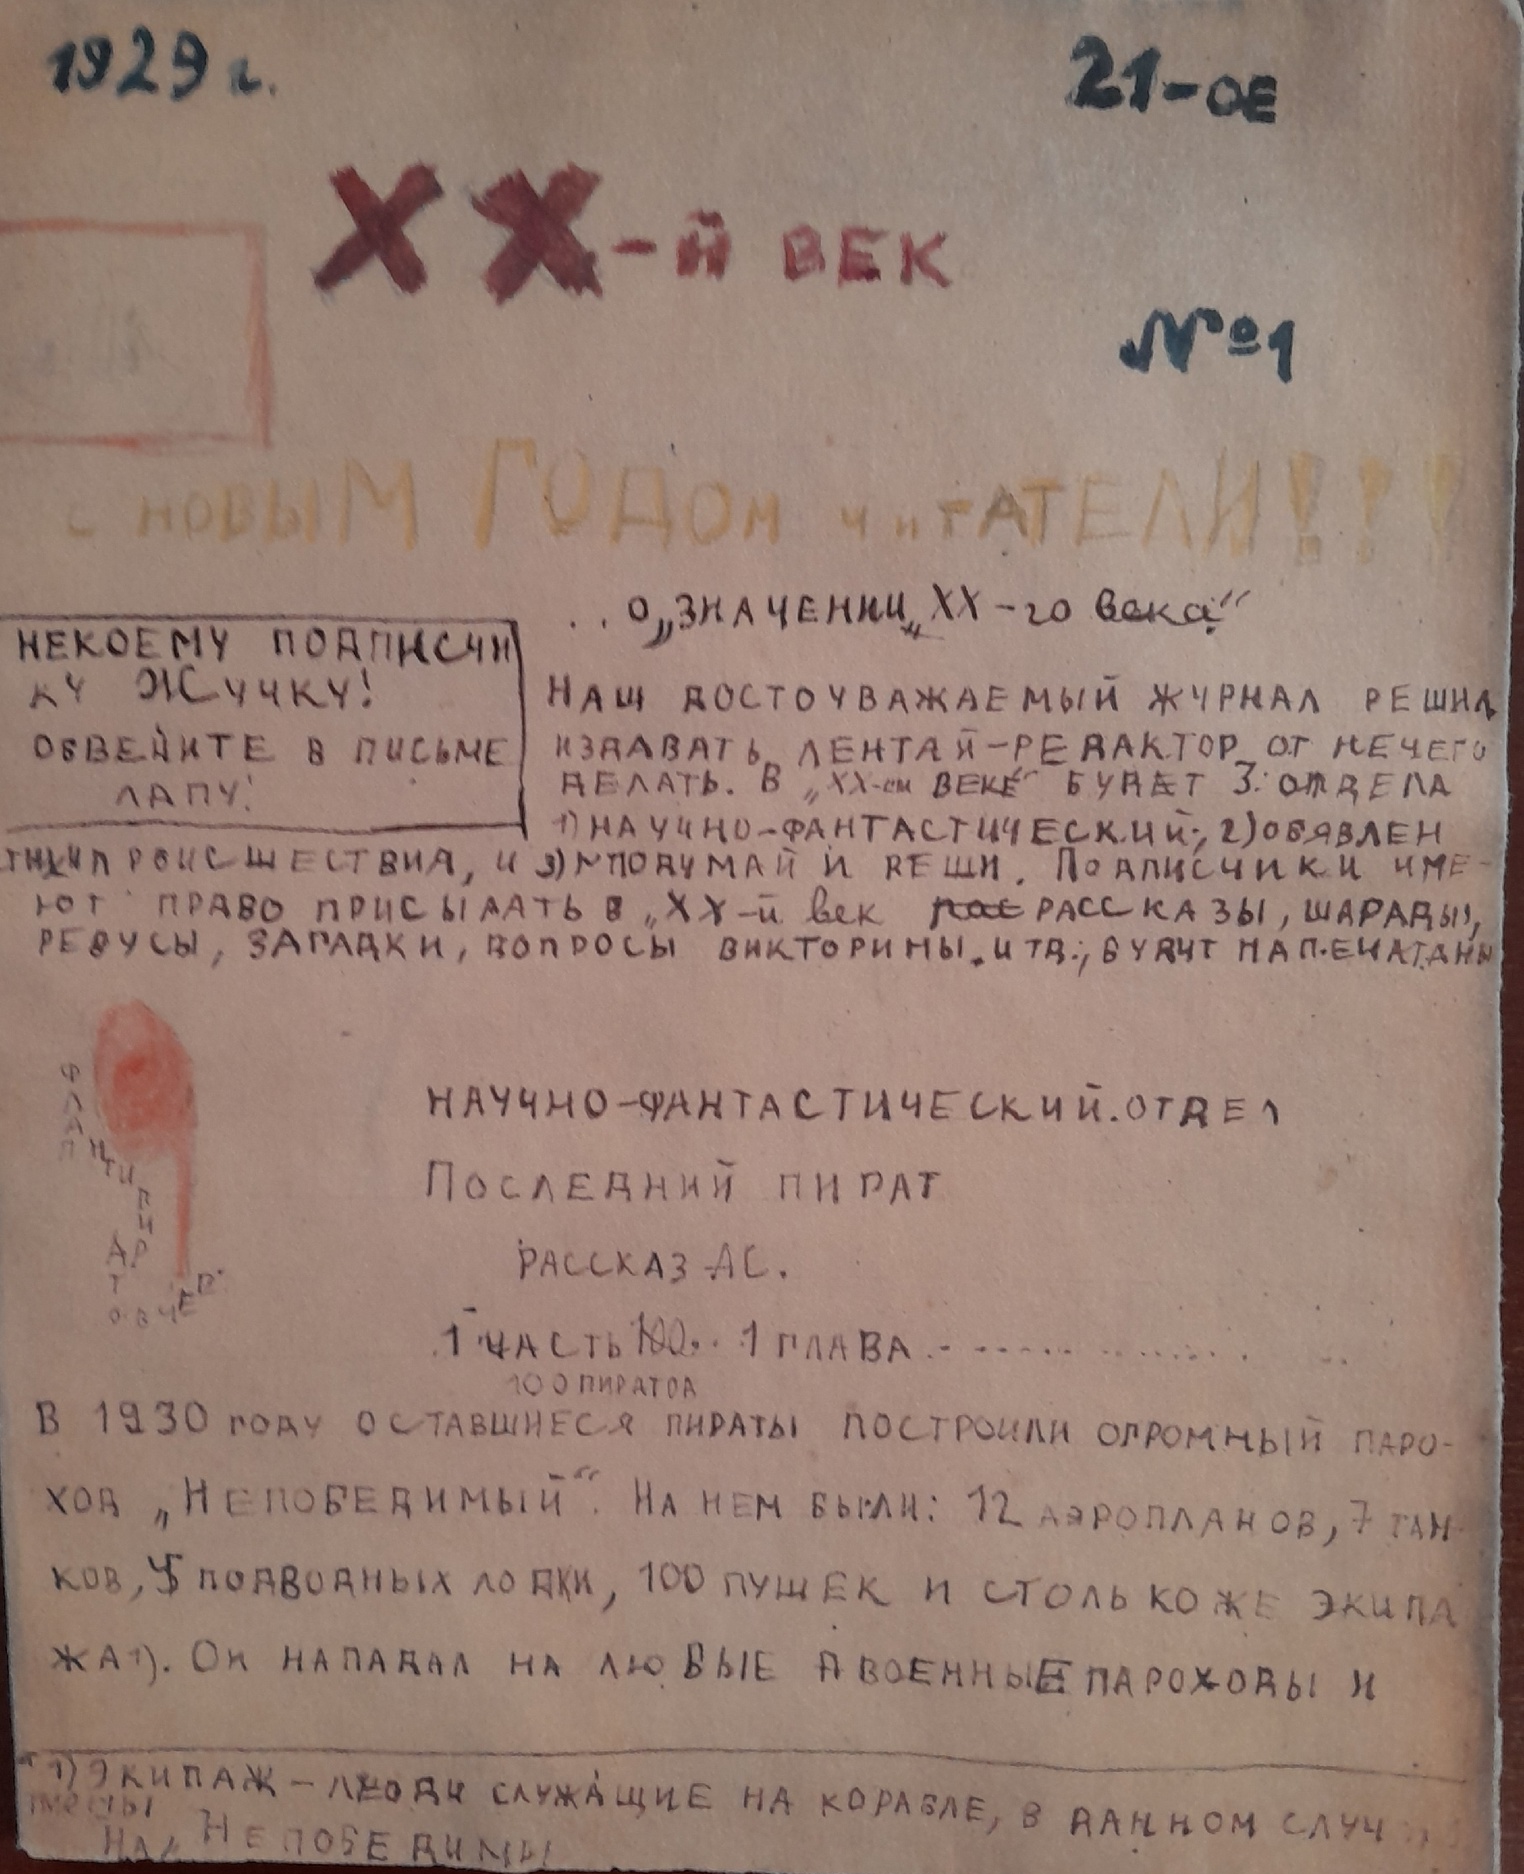 1929 г.
21-ое
XX-й ВЕК
№1
С НОВЫМ ГОДОМ ЧИТАТЕЛИ!!!
НЕКОЕМУ ПОДПИСЧИ
КУ ЖУЧКУ!
ОБВЕЙИТЕ В ПИСЬМЕ
ЛАПУ!
..О„ЗНАЧЕНИИ„XX-го века“
НАШ ДОСТОУВАЖАЕМЫЙ ЖУРНАЛ РЕШИЛ
ИЗДАВАТЬ ЛЕНТАЙ-РЕДАКТОР ОТ НЕЧЕГО
ДЕЛАТЬ. В „XX-ом ВЕКЕ“ БУДЕТ 3: ОТДЕЛА
1) НАУЧНО-ФАНТАСТИЧЕСКИЙ; 2) ОБЯВЛЕН
ПРОИСШЕСТВИЯ, И 3) ПОДУМАЙ И РЕШИ. ПОДПИСЧИКИ ИМЕ-
ЮТ ПРАВО ПРИСЫЛАТЬ В „XX-й век РАССКАЗЫ, ШАРАДЫ,
РЕБУСЫ, ЗАГАДКИ, ВОПРОСЫ ВИКТОРИНЫ. И ТД.; БУДУТ НАПЕЧАТАНЫ
НАУЧНО-ФАНТАСТИЧЕСКИЙ.ОТДЕЛ
ПОСЛЕДНИЙ ПИРАТ
РАССКАЗ АС.
1 ЧАСТЬ 1 ГЛАВА
100 ПИРАТОВ
В 1930 ГОДУ ОСТАВШИЕСЯ ПИРАТЫ ПОСТРОИЛИ ОГРОМНЫЙ ПАРО-
ХОД „НЕПОБЕДИМЫЙ“. НА НЕМ БЫЛИ: 12 АЭРОПЛАНОВ, 7 ТАН-
КОВ, ПОДВОДНЫХ ЛОДКИ, 100 ПУШЕК И СТОЛЬКО ЖЕ ЭКИПА
ЖА 1). ОН НАПАДАЛ НА ЛЮБЫЕ ВОЕННЫЕ ПАРОХОДЫ И
1) ЭКИПАЖ – ЛЮДИ СЛУЖАЩИЕ НА КОРАБЛЕ, В ДАННОМ СЛУЧ
НА НЕПОБЕДИМЫ